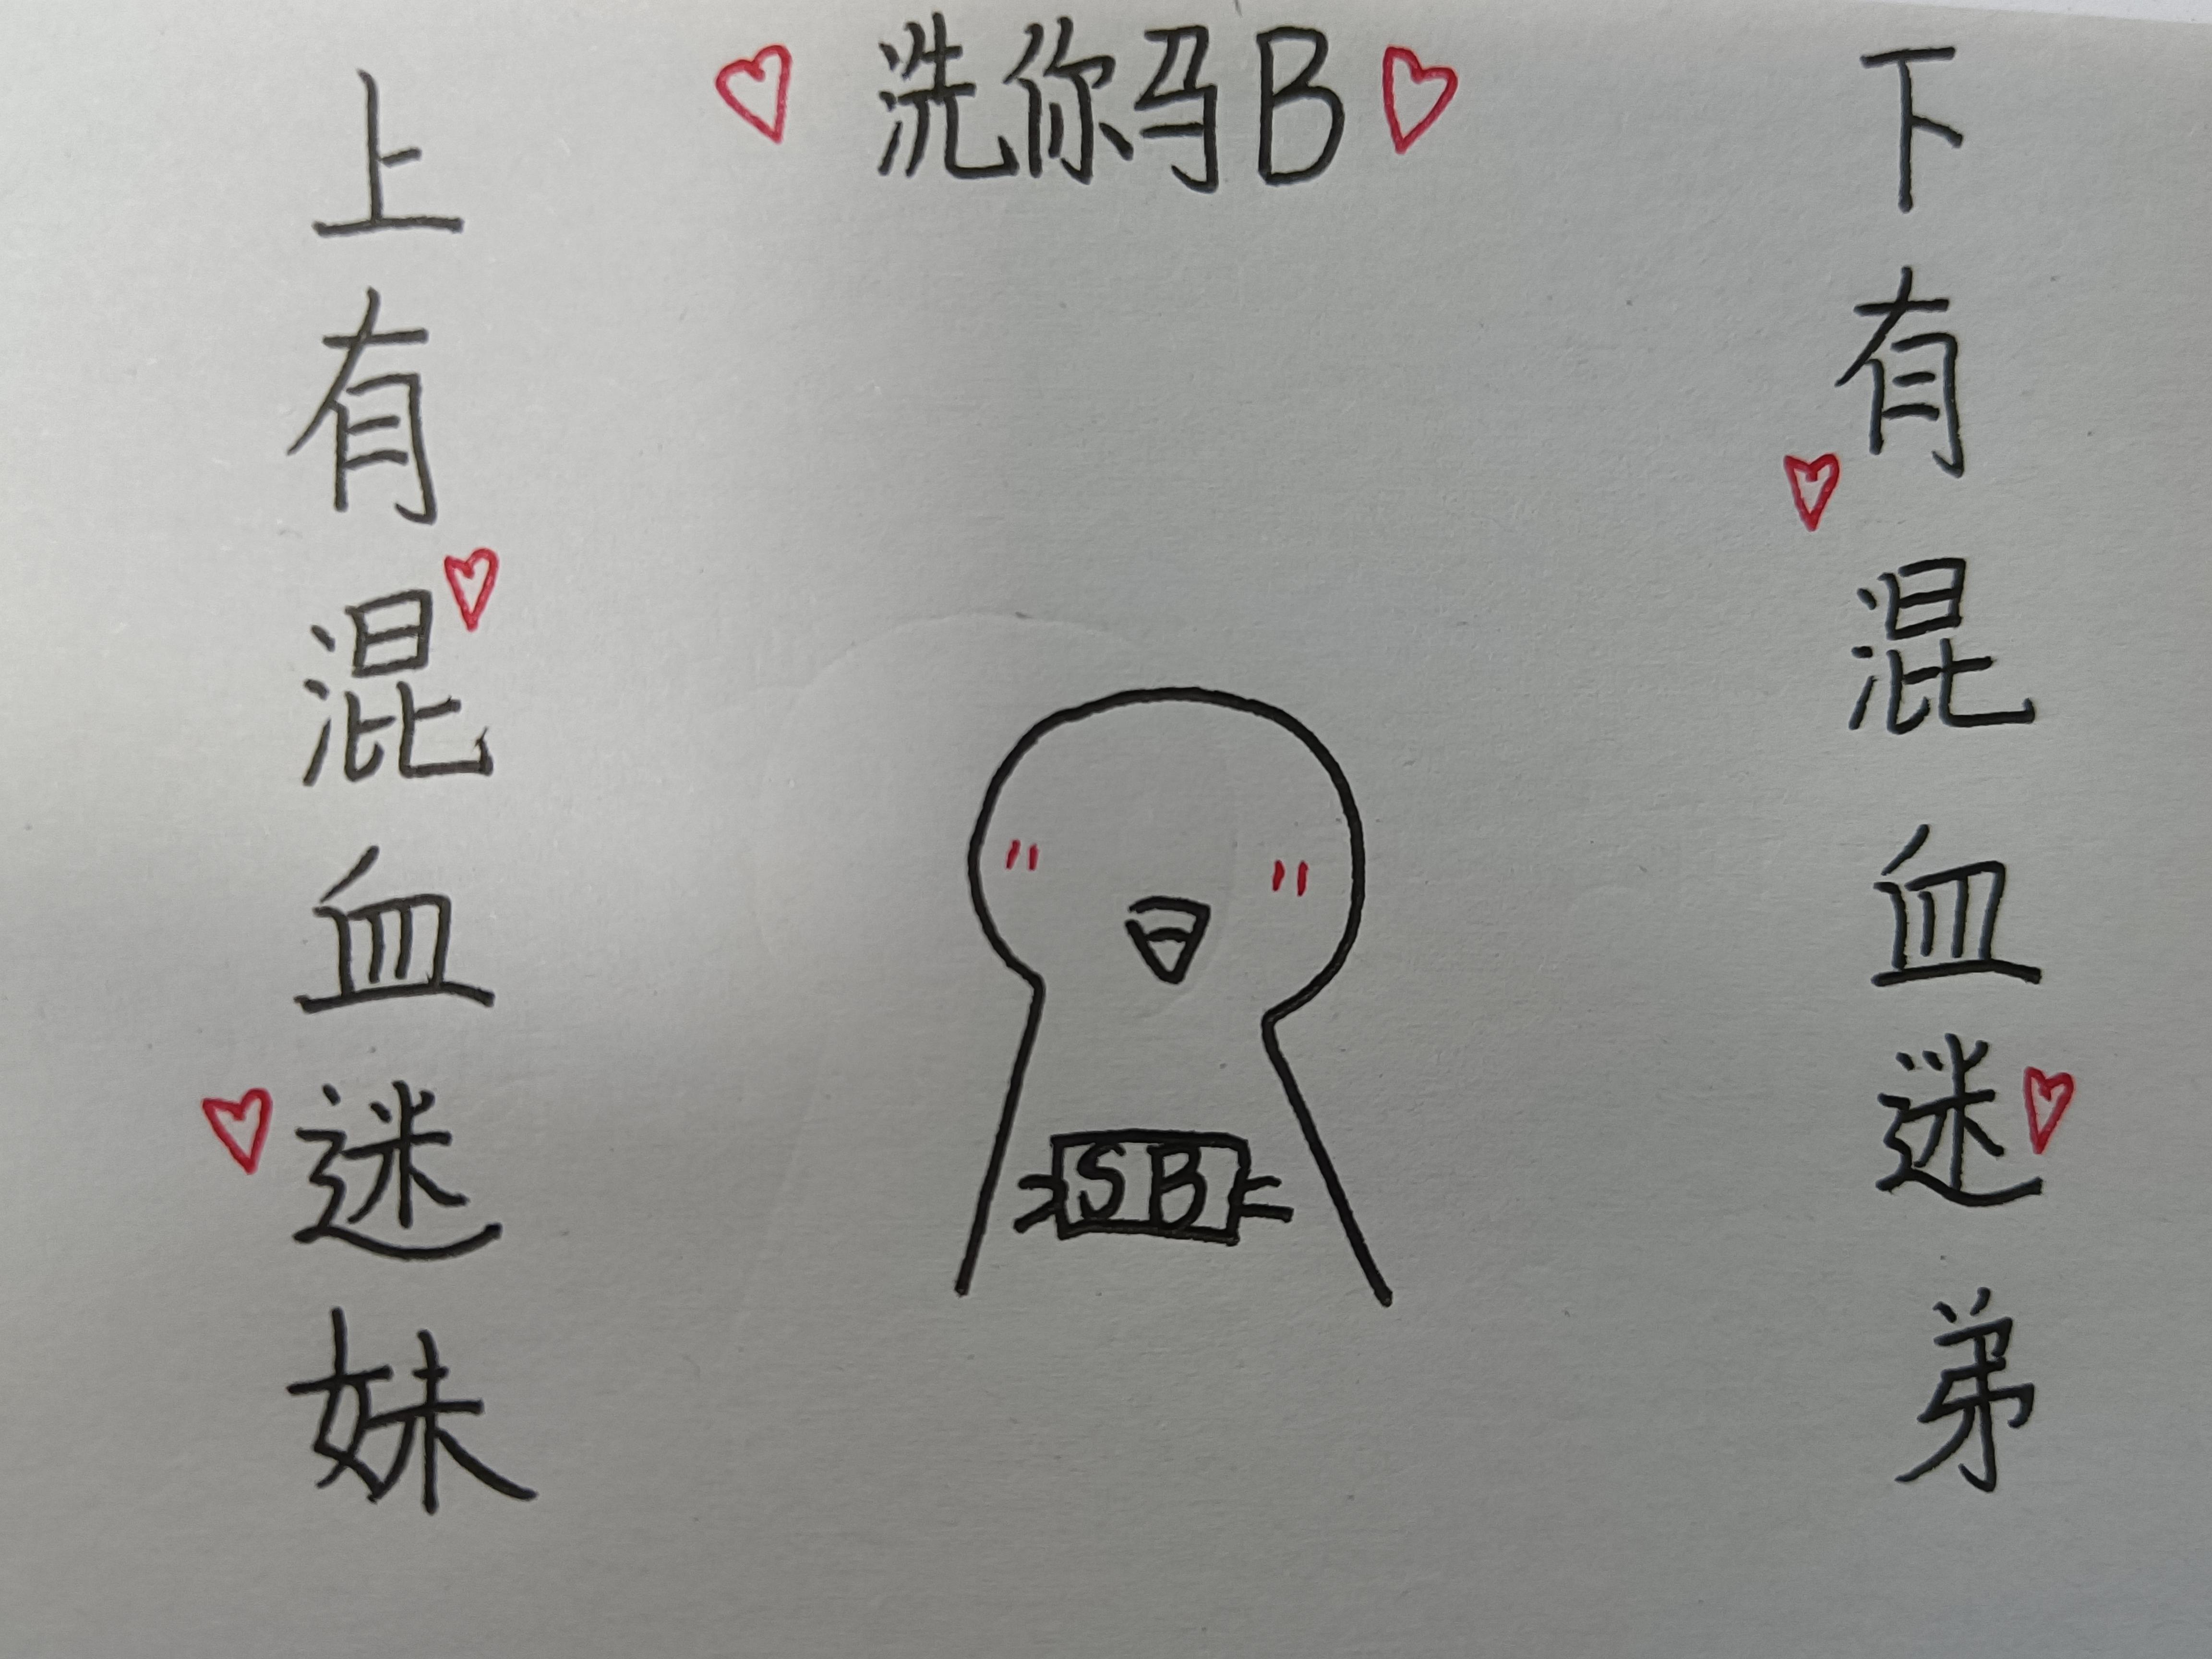 洗你马B
上有混血迷妹
下有混血迷弟
SB